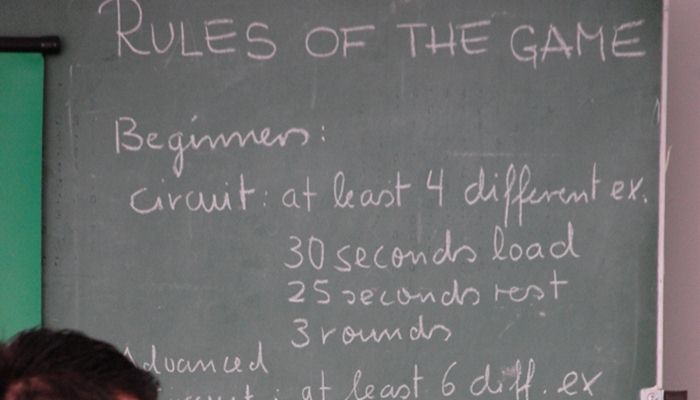 RULES OF THE GAME
Beginners:
circuit: at least 4 different ex.
30 seconds load
25 seconds rest
3 rounds
Advanced
circuit: at least 6 diff. ex